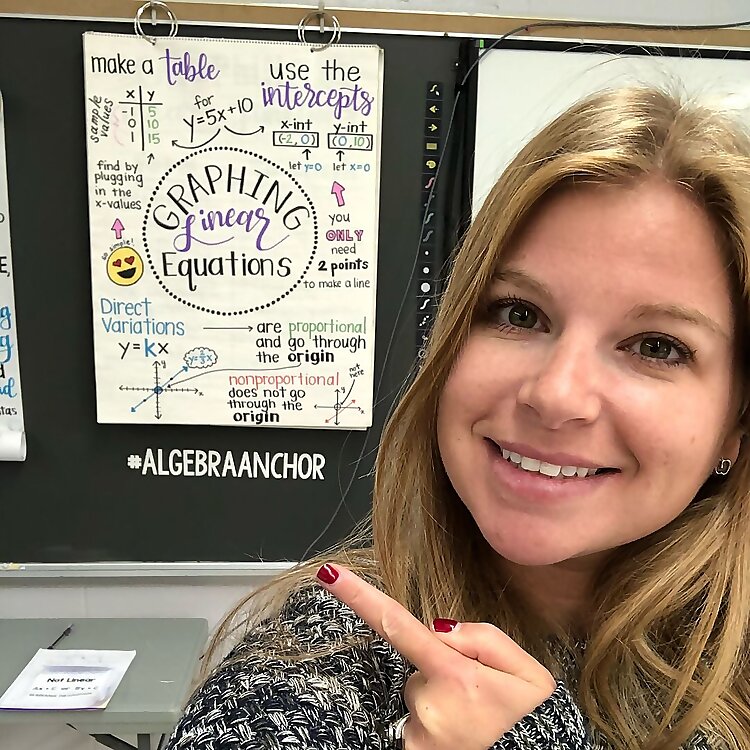 make a table
x y
-1 5
0 10
1 15
sample values
for
y=5x+10
use the
intercepts
x-int y-int
(-2, 0) (0, 10)
let y=0 let x=0
find by
plugging
in the
x-values
so simple!
GRAPHING
Linear
Equations
you
ONLY
need
2 points
to make a line
Direct
Variations
y=kx
are proportional
and go through
the origin
nonproportional
does not go
through the
origin
not
here
y
x
#ALGEBRAANCHOR
Not Linear